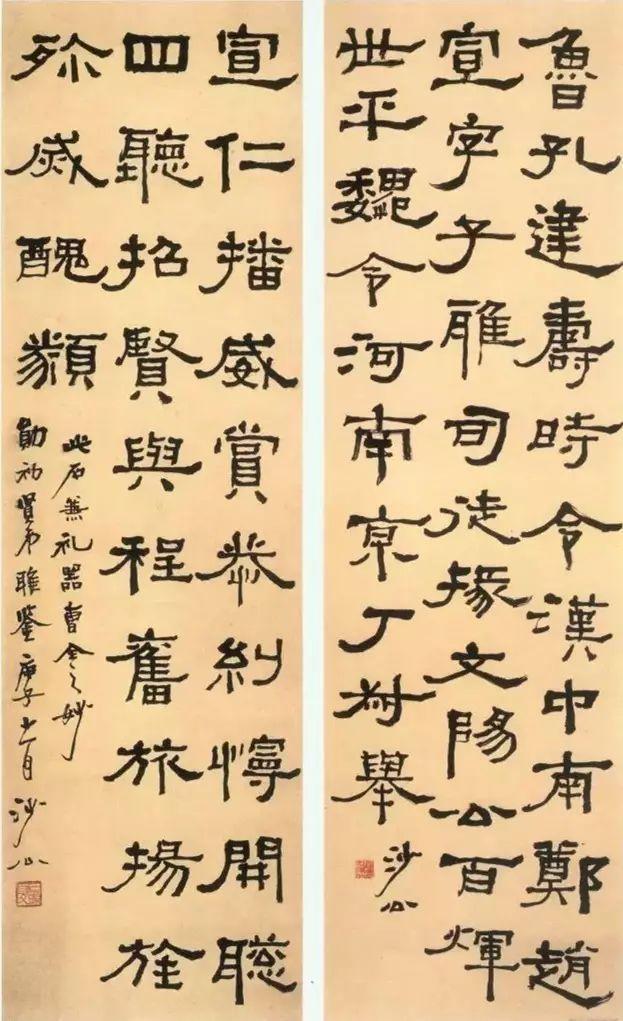 魯孔建壽時令漢中南鄭趙
宣字子雅司徒掾文陽公百煇
世平魏令河南京丁叔舉
沙公
宣仁播威賞恭糾懧開聡
四聽招賢與程奮旅揚旌
殄威醜類
此石兼礼器曹全之妙
勛初賢弟雅鑒庚子十一月沙公